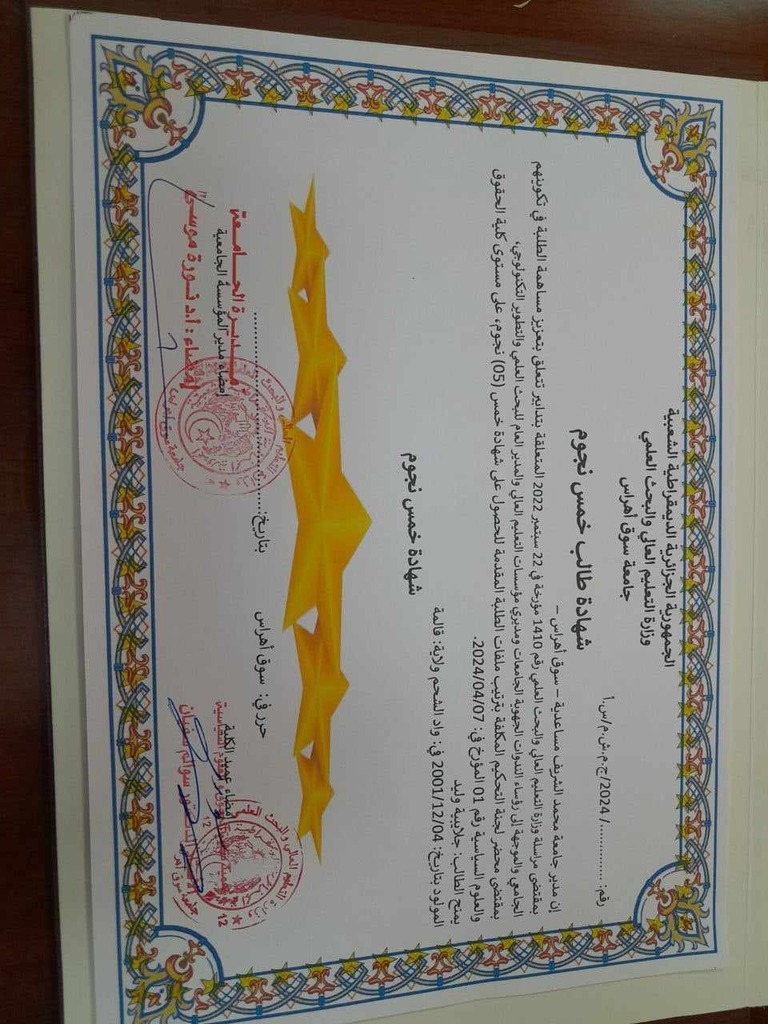 الجمهورية الجزائرية الديمقراطية الشعبية
وزارة التعليم العالي والبحث العلمي
جامعة سوق أهراس
رقم: ............/2024/ج.م.ش.م/س.ا
شهادة طالب خمس نجوم
إن مدير جامعة محمد الشريف مساعدية – سوق أهراس –
بمقتضى مراسلة وزارة التعليم العالي والبحث العلمي رقم 1410 مؤرخة في 22 سبتمبر 2022 المتعلقة بتدابير تتعلق بتعزيز مساهمة الطلبة في تكوينهم
الجامعي والموجهة إلى رؤساء الندوات الجهوية الجامعات ومديري مؤسسات التعليم العالي والمدير العام للبحث العلمي والتطوير التكنولوجي،
بمقتضى محضر لجنة التحكيم المكلفة بترتيب ملفات الطلبة المقدمة للحصول على شهادة خمس (05) نجوم، على مستوى كلية الحقوق
والعلوم السياسية رقم 01 المؤرخ في: 2024/04/07.
يمنح الطالب: جلايبية وليد
المولود بتاريخ: 2001/12/04 في: واد الشحم ولاية: قالمة
شهادة خمس نجوم
حرر في: سوق أهراس بتاريخ:........................
إمضاء عميد الكلية
إمضاء مدير المؤسسة الجامعية
مديرة الجامعة
إمضاء: أ.د نورة موسى